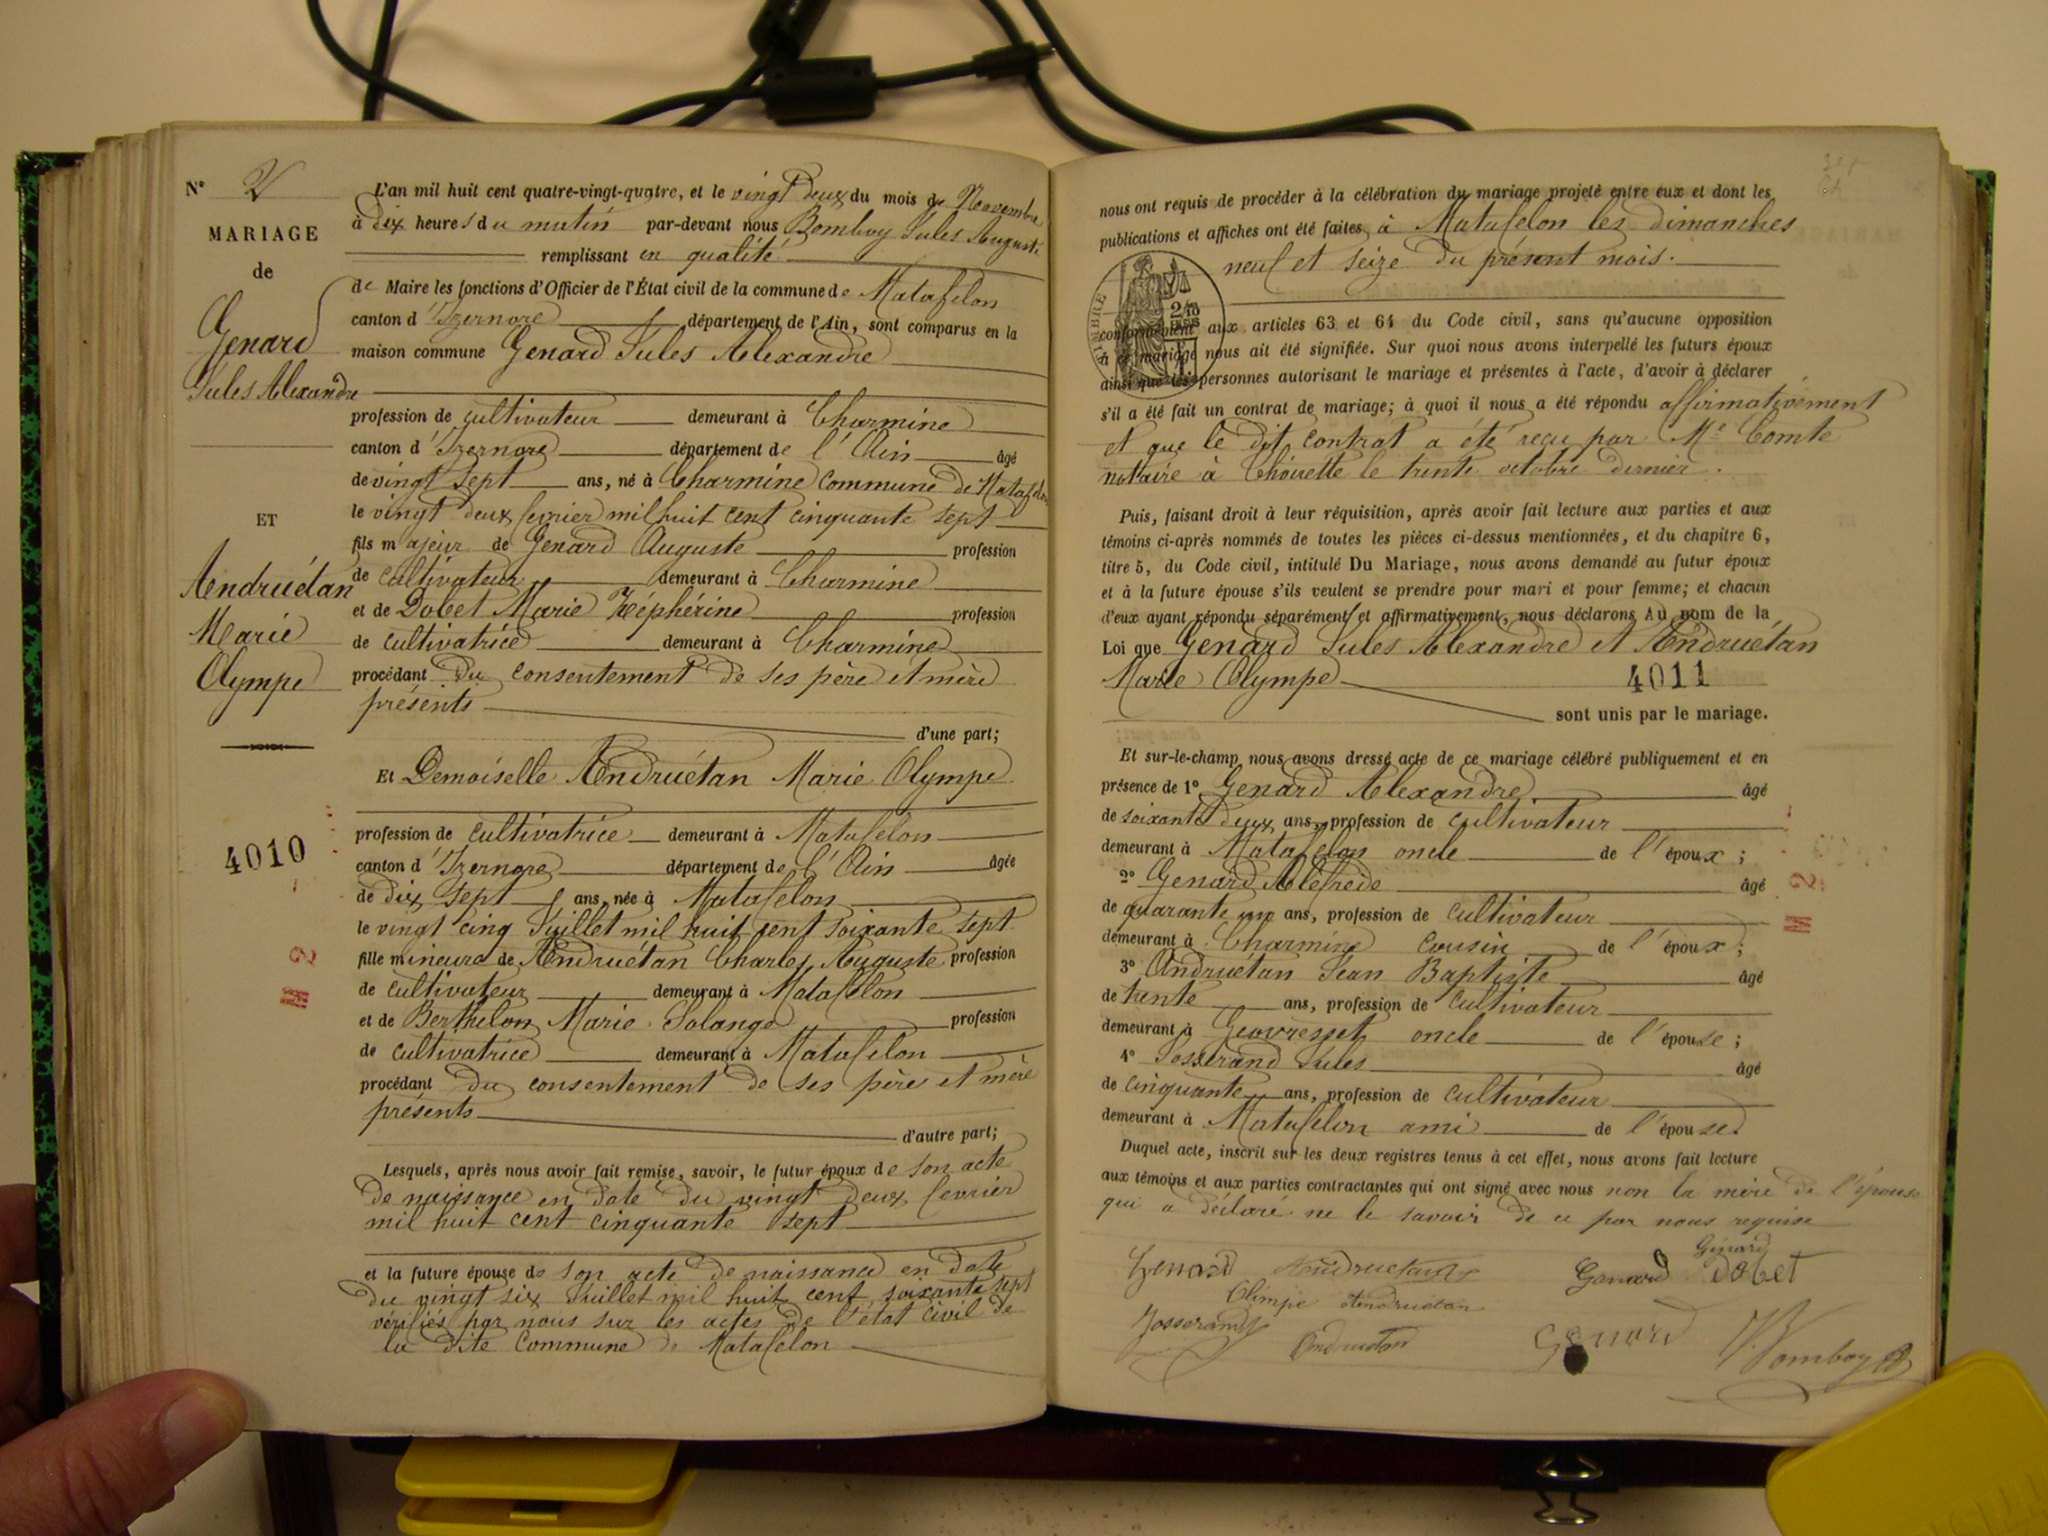 N° 2
MARIAGE
de
Genard
Jules Alexandre
ET
Andruétan
Marie
Olympe
4010
L'an mil huit cent quatre-vingt-quatre, et le vingt deux du mois de Novembre
à dix heures du matin par-devant nous Bomboy Jules Auguste
remplissant en qualité
de Maire les fonctions d'Officier de l'État civil de la commune de Matafelon
canton d'Izernore département de l'Ain, sont comparus en la
maison commune Genard Jules Alexandre
profession de cultivateur demeurant à Charmine
canton d'Izernore département de l'Ain âgé
de vingt sept ans, né à Charmine commune de Matafelon
le vingt deux fevrier mil huit cent cinquante sept
fils majeur de Genard Auguste profession
de cultivateur demeurant à Charmine
et de Dobet Marie Zéphérine profession
de cultivatrice demeurant à Charmine
procédant du consentement de ses père et mère
présents
d'une part;
Et Demoiselle Andruétan Marie Olympe
profession de cultivatrice demeurant à Matafelon
canton d'Izernore département de l'Ain âgée
de dix sept ans, née à Matafelon
le vingt cinq Juillet mil huit cent soixante sept
fille mineure de Andruétan Charles Auguste profession
de cultivateur demeurant à Matafelon
et de Berthelon Marie Solange profession
de cultivatrice demeurant à Matafelon
procédant du consentement de ses père et mère
présents
d'autre part;
Lesquels, après nous avoir fait remise, savoir, le futur époux de son acte
de naissance en date du vingt deux fevrier
mil huit cent cinquante sept
et la future épouse de son acte de naissance en date
du vingt six Juillet mil huit cent soixante sept
vérifiés par nous sur les actes de l'état civil de
la dite Commune de Matafelon
nous ont requis de procéder à la célébration du mariage projeté entre eux et dont les
publications et affiches ont été faites à Matafelon les dimanches
neuf et seize du présent mois.
TIMBRE
conformément aux articles 63 et 64 du Code civil, sans qu'aucune opposition
à ce mariage nous ait été signifiée. Sur quoi nous avons interpellé les futurs époux
ainsi que les personnes autorisant le mariage et présentes à l'acte, d'avoir à déclarer
s'il a été fait un contrat de mariage; à quoi il nous a été répondu affirmativement
et que le dit contrat a été reçu par Me Comte
notaire à Thoirette le trente octobre dernier.
Puis, faisant droit à leur réquisition, après avoir fait lecture aux parties et aux
témoins ci-après nommés de toutes les pièces ci-dessus mentionnées, et du chapitre 6,
titre 5, du Code civil, intitulé Du Mariage, nous avons demandé au futur époux
et à la future épouse s'ils veulent se prendre pour mari et pour femme; et chacun
d'eux ayant répondu séparément et affirmativement, nous déclarons Au nom de la
Loi que Genard Jules Alexandre et Andruétan
Marie Olympe
4011
sont unis par le mariage.
Et sur-le-champ nous avons dressé acte de ce mariage célébré publiquement et en
présence de 1° Genard Alexandre âgé
de soixante deux ans, profession de cultivateur
demeurant à Matafelon oncle de l'époux;
2° Genard Alefrede âgé
de quarante un ans, profession de cultivateur
demeurant à Charmine cousin de l'époux;
3° Andruétan Jean Baptiste âgé
de trente ans, profession de cultivateur
demeurant à Geovresset oncle de l'épouse;
4° Josserand Jules âgé
de cinquante ans, profession de cultivateur
demeurant à Matafelon ami de l'épouse.
Duquel acte, inscrit sur les deux registres tenus à cet effet, nous avons fait lecture
aux témoins et aux parties contractantes qui ont signé avec nous non la mère de l'épouse
qui a déclaré ne le savoir de ce par nous requise
Genard Andruetan Genard Genard Dobet
Olimpe Andruetan
Josserand Andruetan Genard Bomboy